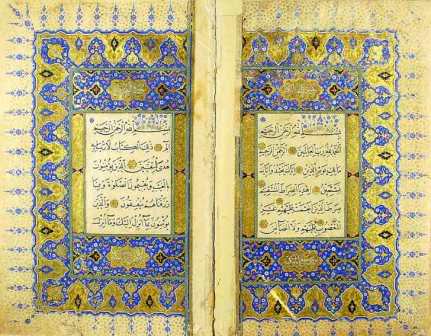 بسم الله الرحمن الرحيم
الحمد لله رب العالمين الرحمن الرحيم
مالك يوم الدين اياك نعبد واياك
نستعين اهدنا الصراط المستقيم
صراط الذين انعمت عليهم غير
المغضوب عليهم ولا الضالين
بسم الله الرحمن الرحيم
الم ذلك الكتاب لا ريب فيه
هدى للمتقين الذين يؤمنون
بالغيب ويقيمون الصلوة ومما
رزقناهم ينفقون والذين
يؤمنون بما انزل اليك وما انزل